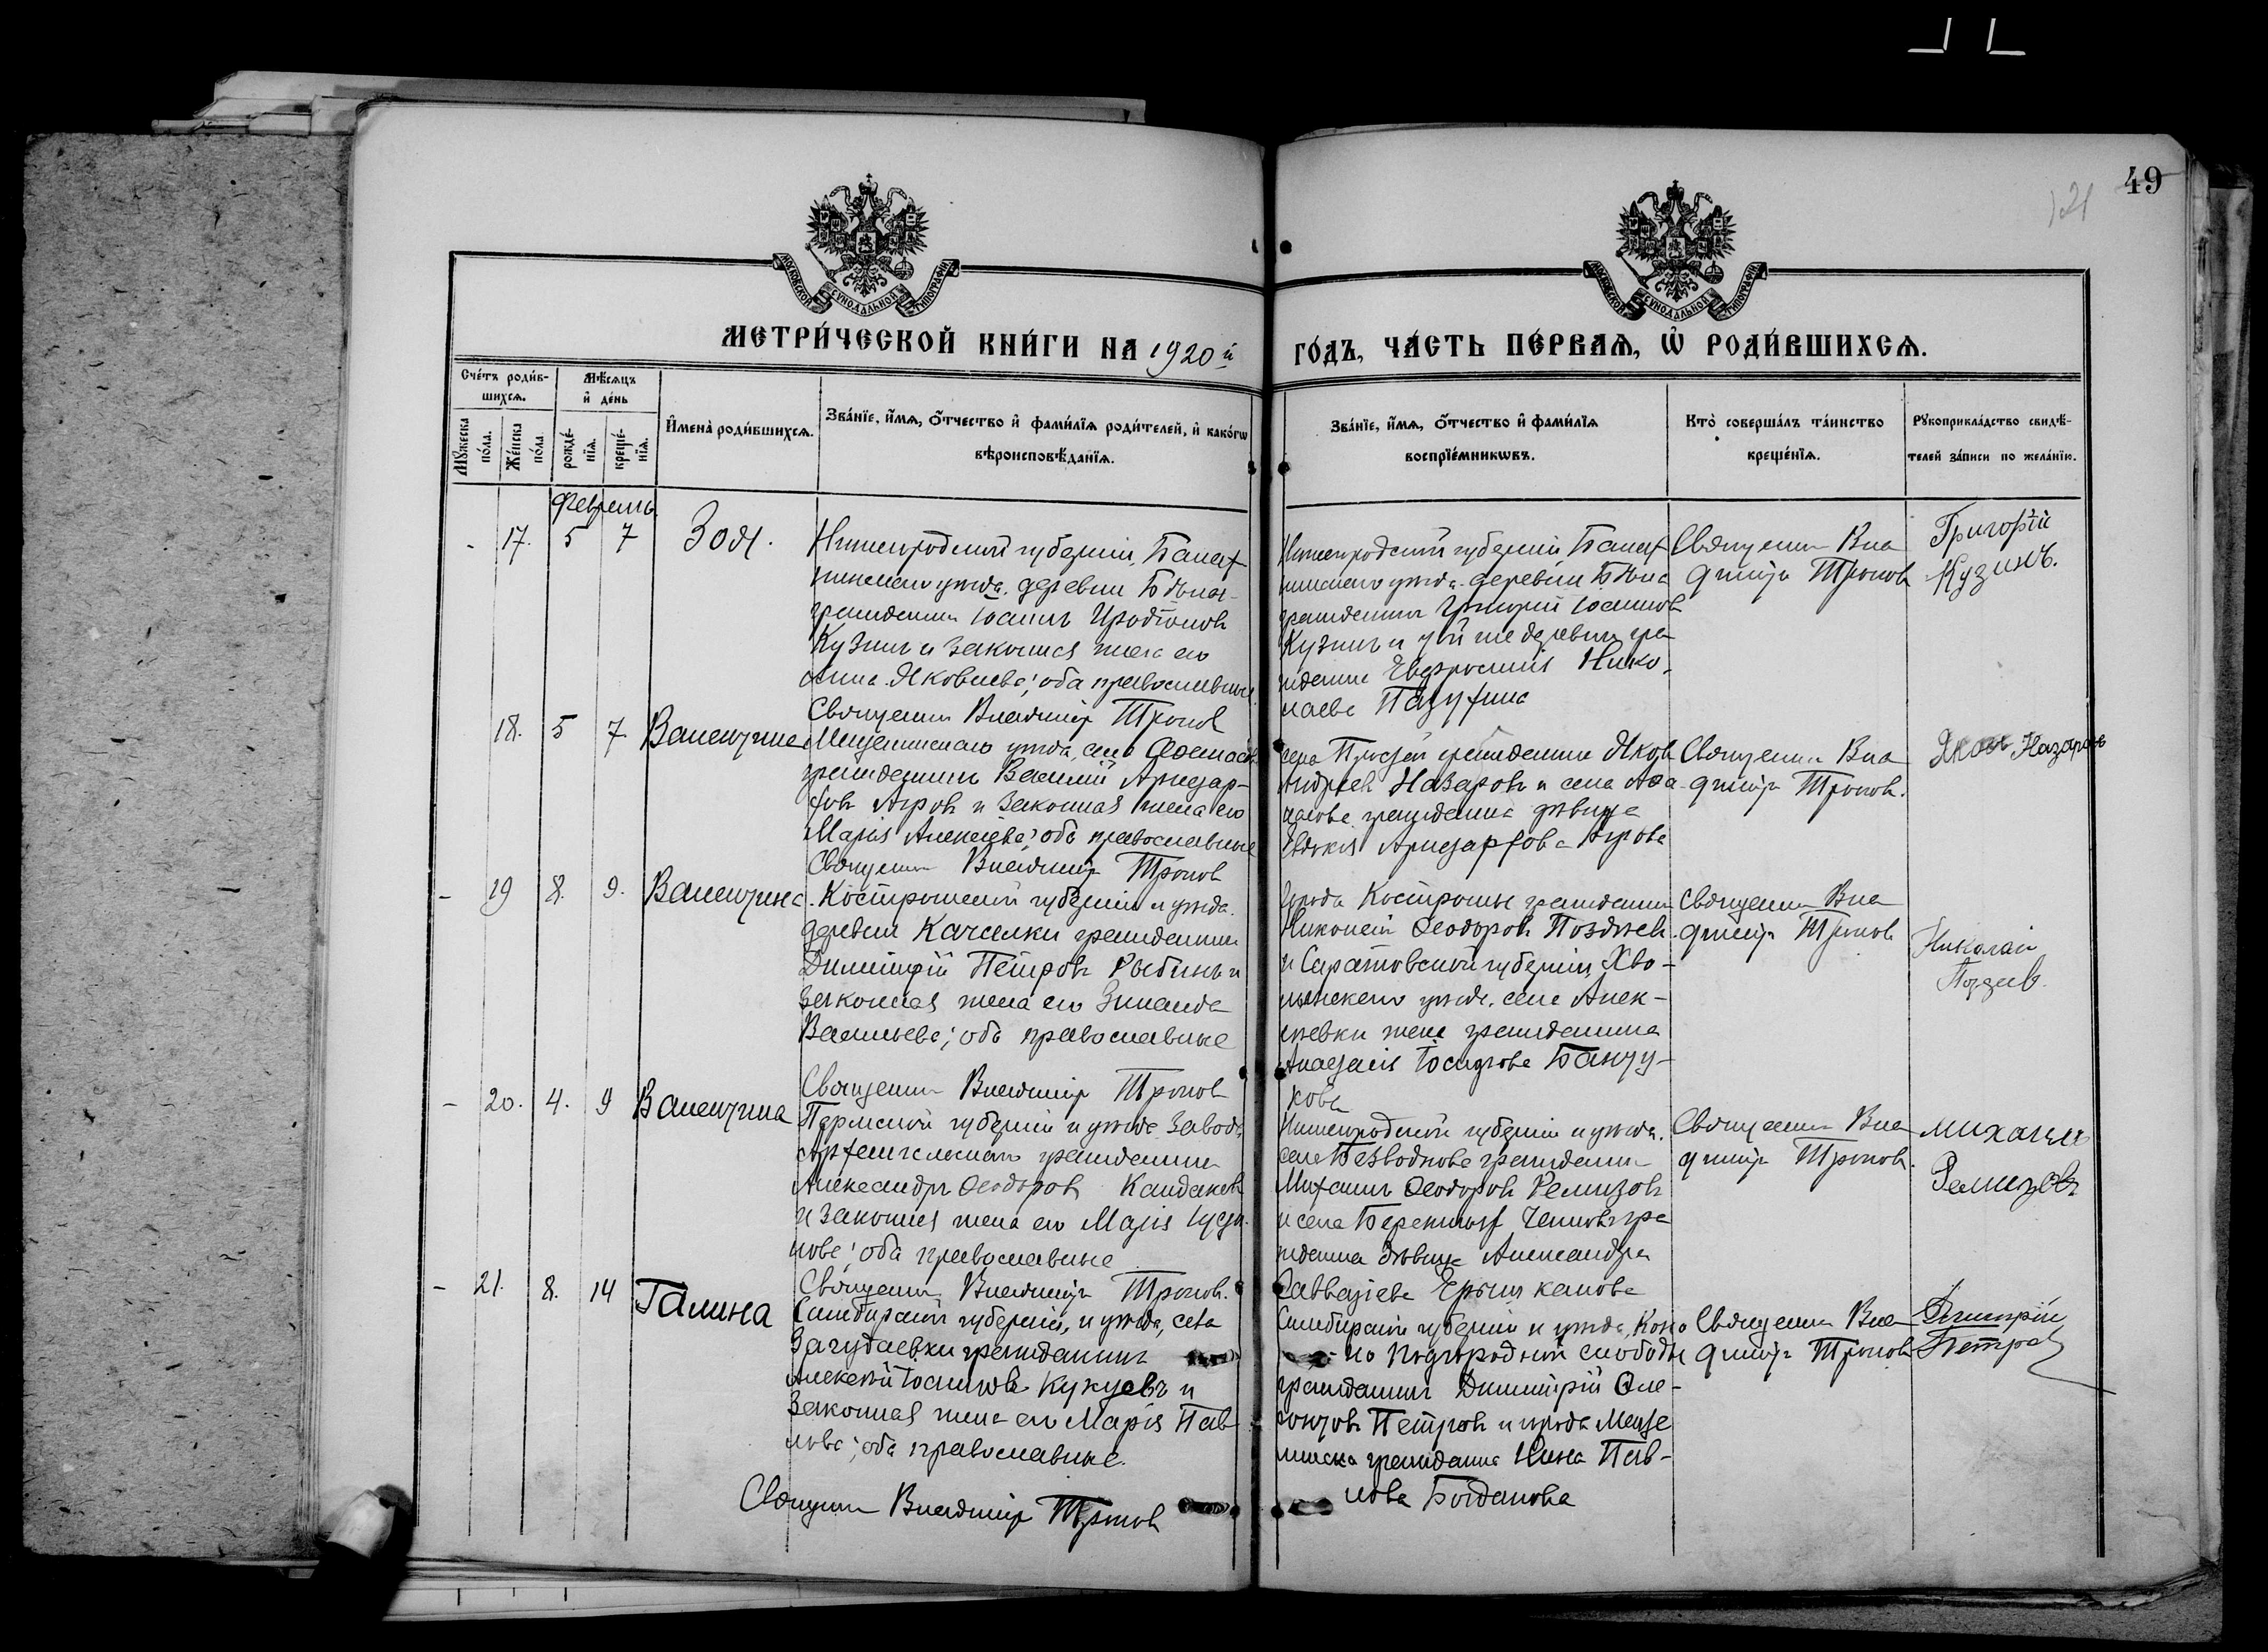 49
121
МОСКОВСКОЙ СѴНОДАЛЬНОЙ ТИПОГРАФІИ
МОСКОВСКОЙ СѴНОДАЛЬНОЙ ТИПОГРАФІИ
МЕТРИ́ЧЕСКОЙ КНИ́ГИ НА 1920 й
ГО́ДЪ, ЧА́СТЬ ПЕ́РВАЯ, Ѡ҆ РОДИ́ВШИХСЯ.
Сче́тъ роди́в-
шихся.
Мѣ́сяцъ
и҆ де́нь
Мꙋ́жеска
по́ла.
Же́нска
по́ла.
рожде́-
нїя.
креще́-
нїя.
И҆мена̀ роди́вшихся.
Зва́нїе, и҆́мя, ѻ҆́тчество и҆ фами́лїя роди́телей, и҆ како́гѡ
вѣроисповѣ́данїя.
Зва́нїе, и҆́мя, ѻ҆́тчество и҆ фами́лїя
воспрїе́мникѡвъ.
Кто̀ соверша́лъ та́инство
креще́нїя.
Рꙋкоприкла́дство свидѣ́-
телей за́писи по жела́нїю.
Февраль
- 17. 5 7 Зоя.
Нижегородской губерніи, Балах
нинскаго уѣзда, деревни
гражданинъ Іоаннъ Иродіоновъ
Кузинъ и законная жена его
Анна Яковлева; оба православные
Священникъ Владиміръ Троповъ
Нижегородской губерніи Балах
нинскаго уѣзда деревни
гражданинъ Григорій Іоанновъ
Кузинъ и той же деревни гра
жданка Евфросинія Нико-
лаева Пазухина
Священникъ Вла
диміръ Троповъ
Григорій
Кузинъ.
18. 5 7 Валентина
Мензелинскаго уѣзда, село
гражданинъ Василій
и законная жена его
Марія Алексѣева; оба православные
Священникъ Владиміръ Троповъ
села гражданинъ Яковъ
Андреевъ Назаровъ и села
гражданка дѣвица
Евдокія
Священникъ Вла
диміръ Троповъ.
Яковъ Назаровъ
- 19 8. 9. Валентина.
Костромской губерніи и уѣзда
деревни Качалки гражданинъ
Димитрій Петровъ Рыбинъ и
законная жена его Зинаида
Васильева; оба православные
Священникъ Владиміръ Троповъ
Города Костромы гражданинъ
Николай Ѳеодоровъ Поздѣевъ
и Саратовской губерніи, Хва-
лынскаго уѣзда, села Алек-
сѣевки жена гражданина
Анастасія Іосифова Банту-
кова
Священникъ Вла
диміръ Троповъ
Николай
Поздеев.
- 20. 4. 9 Валентина
Пермской губерніи и уѣзда Завода
гражданинъ
Александръ Ѳеодоровъ Кандаковъ
и законная жена его Марія
нова; оба православные
Священникъ Владиміръ Троповъ.
Нижегородской губерніи и уѣзда.
села Безводнова гражданинъ
Михаилъ Ѳеодоровъ Ремизовъ
и села Бережныхъ Челновъ гра
жданка дѣвица Александра
Савватіева
Священникъ Вла
диміръ Троповъ.
михаилъ
Ремизовъ
- 21. 8. 14 Галина
Симбирской губерніи, и уѣзда, села
гражданинъ
Алексѣй Іоанновъ Кукуевъ и
законная жена его Марія Пав
лова; оба православные.
Священникъ Владиміръ Троповъ
Симбирской губерніи и уѣзда,
Подгородной слободы
гражданинъ Димитрій
Петровъ и города Мензе
линска гражданка Нина Пав-
лова Богданова
Священникъ Вла
диміръ Троповъ
Дмитрій
Петров